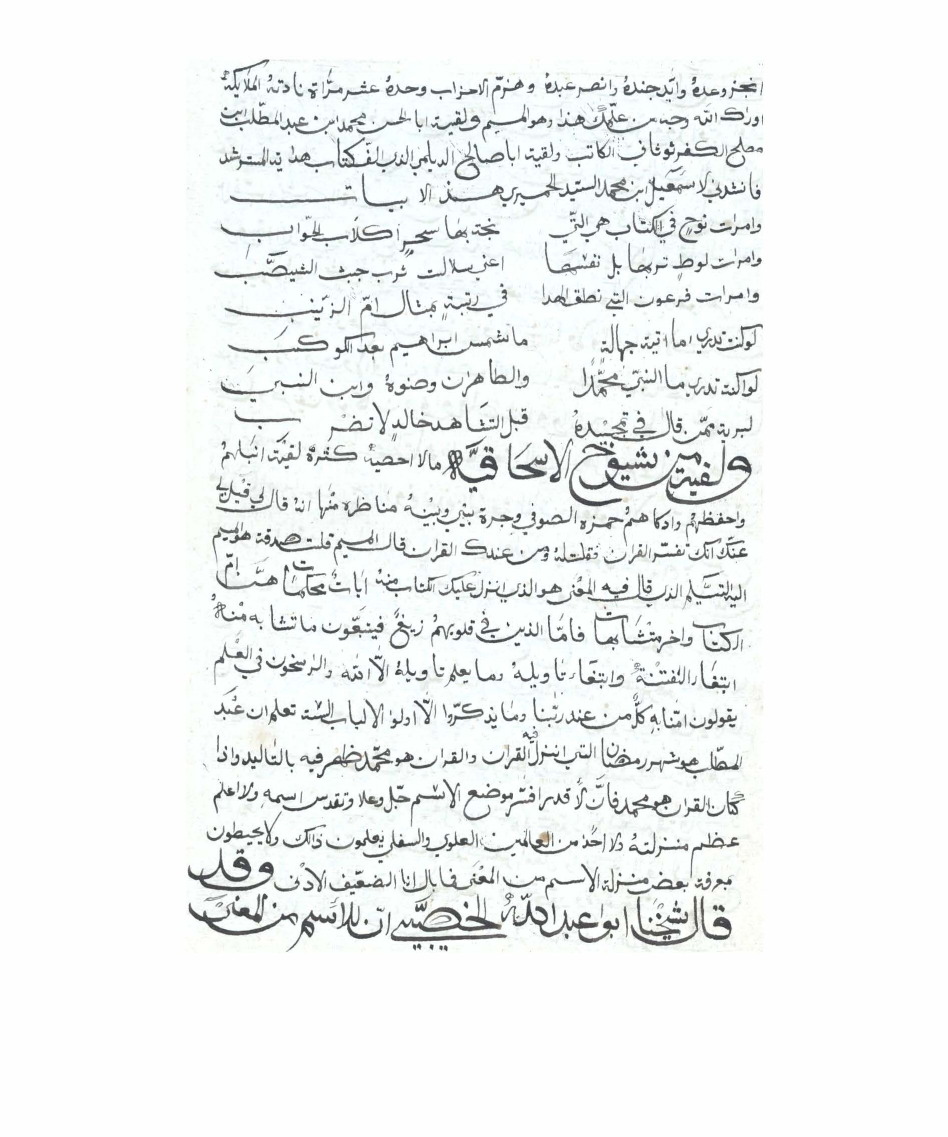 انجز وعدهُ وايّد جندهُ وانصر عبدهُ وهزم الاحزاب وحدهُ عشر مرّاة نادتهُ الملايكهُ
اوراك الله وجه من علّمك هذا وهو الميم ولقية ابا الحسن محمد ابن عبد المطّلب ابن
مصلح الكفرثوثاني الكاتب ولقية اباصالح الديلمي الذي الف كتاب هداية المسترشد
فانشدني لاسمعيل ابن محمد السيّد الحميري هذ الابيات
وامرات نوحٍ في الكتاب هي التّي سحرٍ اكلاب الحوّاب
وامرات لوطٍ تربها بل نفسها اعني سلالت ترب جبث الشيصّب
وامرات فرعون التي نطق الهدا في رتبةٍ بمثال امّ الزّينب
لوكنت تدري اما اتية جهالةٍ ماشمس ابراهيم بعد الكوكب
لواكنة تدري ما النبيّ محمّدًا والطاهران وصنوهُ وابن النبي
لبرية ممّن قال في تمجيدهُ قبل التشاهد خالدٍ لا نضرب
ولقية من شيوخ الاسحاقيّه مالا احصيهُ كثرة لقية انبلهم
واحفظهم واذكاهم حمزه الصوفي وجرة بيني وبينهُ مناظره منها انهُ قال لي قيل لي
عنّك انك تفسّر القران فقلت لهُ ومن عندك القران قال الميم قلت صدقة هو الميم
اليه التسّليم الذي قال فيه المعنى هو الذي انزل عليك الكتاب منهُ ايات محكمات هنّ امّ
الكتاب واخر متشابهات فامّا الذين في قلوبهم زيغٌ فيتبعّون ماتشابه منهُ
ابتغاء الفتنة وابتغاء تاويلهُ وما يعلم تاويلهُ الاّ الله والرسخون في العلم
يقولون امنّا به كلٌّ من عند ربّنا وما يذكّروا الاّ اولو الالباب الست تعلم ان عبد
المطّلب هو شهر رمضان التي انزل فيه القران والقران هو محمّد ظهر فيه بالتاليد واذا
كان القران هو محمد فانّ لا اقدر افسّر موضع الاسم جّل وعلا وتقدس اسمه ولا اعلم
عظم منزلتهُ ولا احدٌ من العالمين العلوي والسفلي يعلمون ذالك ولا يحيطون
معرفة بعض منزلة الاسم من المعنى قابل انا الضعّيف الادنى وقد
قال شيخنا ابو عبد الله الخصيبي انّ للاسم من المعنى